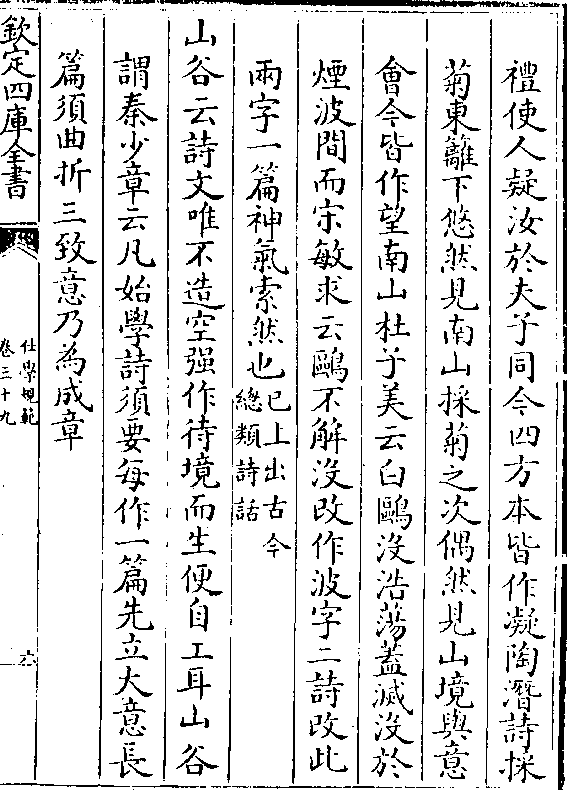 禮使人疑汝於夫子同今四方本皆作凝陶潛詩採
菊東籬下悠然見南山採菊之次偶然見山境與意
會今皆作望南山杜子美云白鷗沒浩蕩葢滅沒於
煙波間而宋敏求云鷗不解沒改作波字二詩改此
兩字一篇神氣索然也已上出古今
總類詩話
山谷云詩文唯不造空强作待境而生便自工耳山谷
謂秦少章云凡始學詩須要每作一篇先立大意長
篇須曲折三致意乃為成章
欽定四庫全書
仕學規範
卷三十九
六